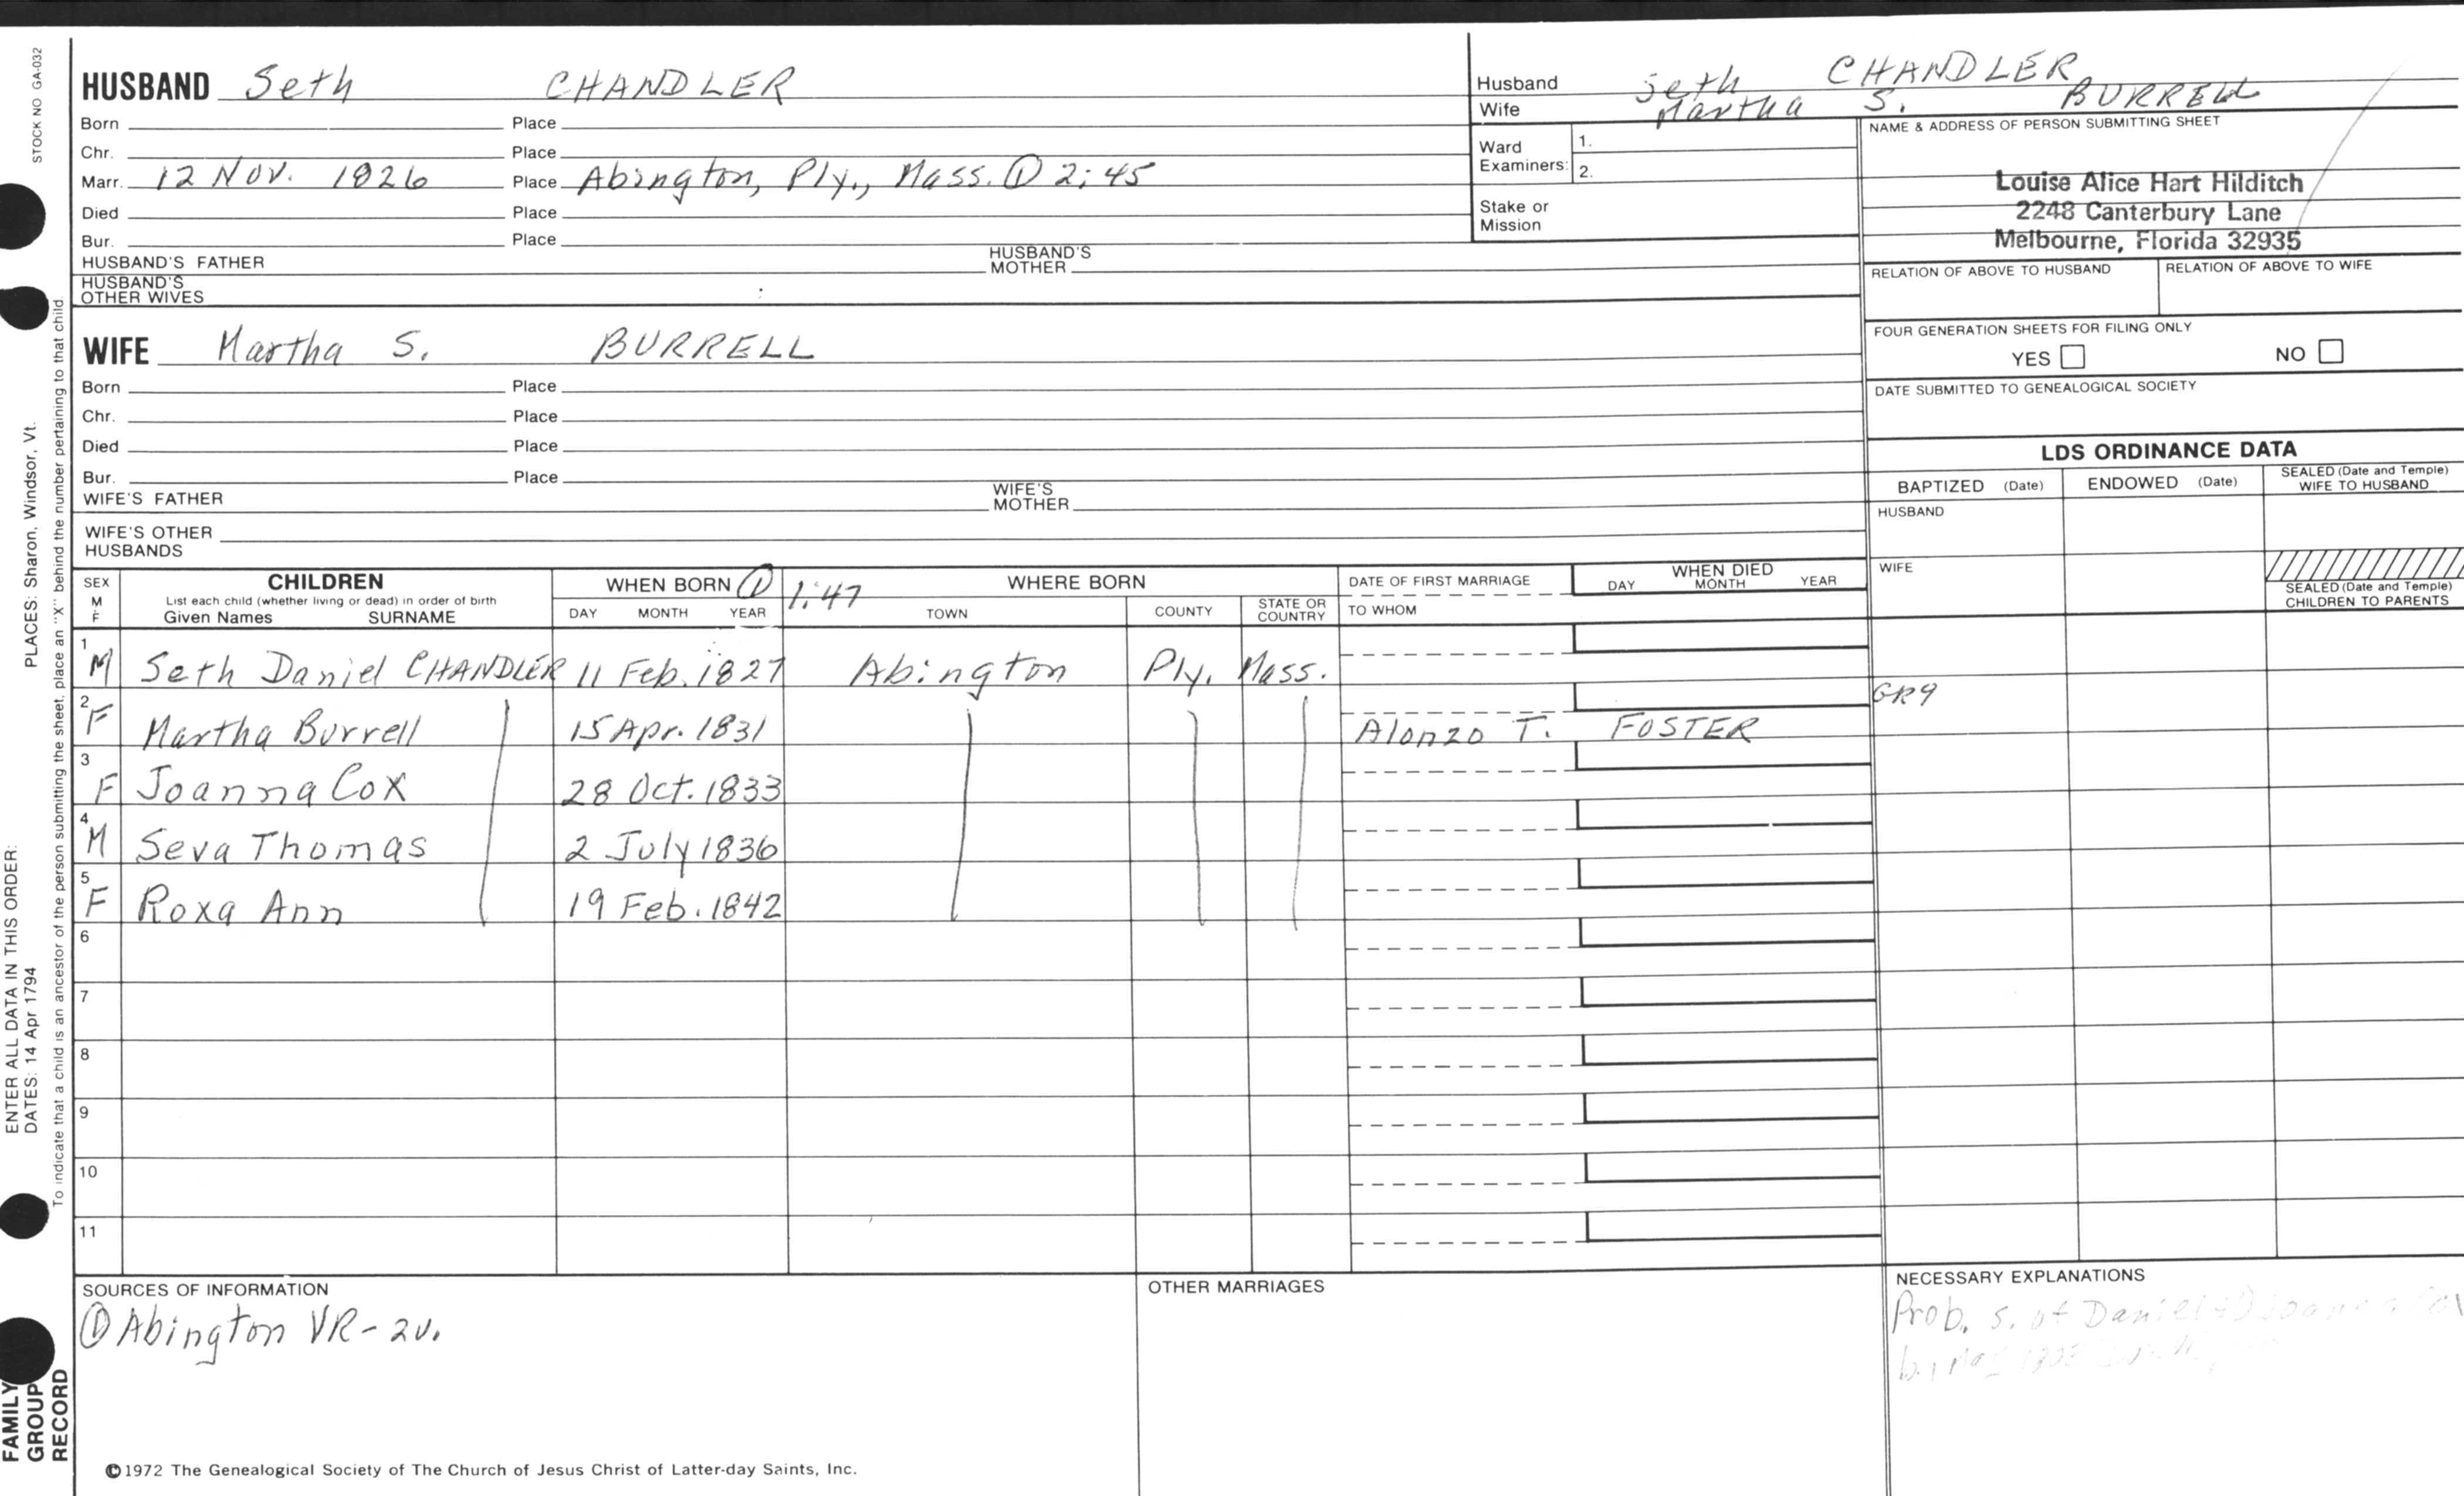 STOCK NO GA-032
PLACES: Sharon, Windsor, Vt.
ENTER ALL DATA IN THIS ORDER:
DATES: 14 Apr 1794
To indicate that a child is an ancestor of the person submitting the sheet, place an "X" behind the number pertaining to that child.
FAMILY
GROUP
RECORD
HUSBAND Seth CHANDLER
Born Place
Chr. Place
Marr. 12 Nov. 1826 Place Abington, Ply., Mass. ① 2:45
Died Place
Bur. Place
HUSBAND'S FATHER HUSBAND'S MOTHER
HUSBAND'S OTHER WIVES
Husband Seth CHANDLER
Wife Martha S. BURRELL
Ward Examiners: 1.
2.
Stake or Mission
NAME & ADDRESS OF PERSON SUBMITTING SHEET
Louise Alice Hart Hilditch
2248 Canterbury Lane
Melbourne, Florida 32935
RELATION OF ABOVE TO HUSBAND RELATION OF ABOVE TO WIFE
FOUR GENERATION SHEETS FOR FILING ONLY
YES NO
DATE SUBMITTED TO GENEALOGICAL SOCIETY
WIFE Martha S. BURRELL
Born Place
Chr. Place
Died Place
Bur. Place
WIFE'S FATHER WIFE'S MOTHER
WIFE'S OTHER HUSBANDS
LDS ORDINANCE DATA
BAPTIZED (Date) ENDOWED (Date) SEALED (Date and Temple) WIFE TO HUSBAND
HUSBAND
WIFE
SEALED (Date and Temple) CHILDREN TO PARENTS
SEX M F CHILDREN WHEN BORN ① 1:47 WHERE BORN DATE OF FIRST MARRIAGE WHEN DIED
List each child (whether living or dead) in order of birth
Given Names SURNAME DAY MONTH YEAR TOWN COUNTY STATE OR COUNTRY TO WHOM DAY MONTH YEAR
1 M Seth Daniel CHANDLER 11 Feb. 1827 Abington Ply. Mass.
2 F Martha Burrell 15 Apr. 1831 Alonzo T. FOSTER GR9
3 F Joanna Cox 28 Oct. 1833
4 M Seva Thomas 2 July 1836
5 F Roxa Ann 19 Feb. 1842
6
7
8
9
10
11
SOURCES OF INFORMATION
① Abington VR - 2v.
OTHER MARRIAGES
NECESSARY EXPLANATIONS
Prob. s. of Daniel
©1972 The Genealogical Society of The Church of Jesus Christ of Latter-day Saints, Inc.